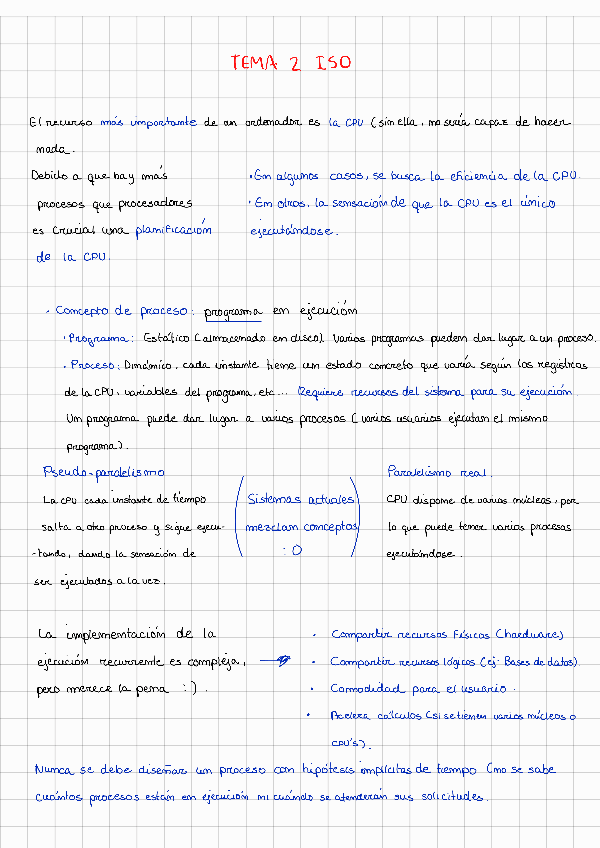 TEMA 2 ISO
El recurso más importante de un ordenador es la CPU (sin ella, no sería capaz de hacer
nada.
Debido a que hay más
procesos que procesadores
es crucial una planificación
de la CPU.
· En algunos casos, se busca la eficiencia de la CPU.
· En otros, la sensación de que la CPU es el único
ejecutándose.
· Concepto de proceso: programa en ejecución
· Programa: Estático (almacenado en disco). Varios programas pueden dar lugar a un proceso.
· Proceso: Dinámico, cada instante tiene un estado concreto que varía según los registros
de la CPU, variables del programa, etc... Requiere recursos del sistema para su ejecución.
Un programa puede dar lugar a varios procesos (varios usuarios ejecutan el mismo
programa).
Pseudo-paralelismo
La CPU cada instante de tiempo
salta a otro proceso y sigue ejecu-
-tando, dando la sensación de
ser ejecutados a la vez.
(Sistemas actuales
mezclan conceptos
:O)
Paralelismo real.
CPU dispone de varios núcleos, por
lo que puede tener varios procesos
ejecutándose.
La implementación de la
ejecución recurrente es compleja,
pero merece la pena :).
· Compartir recursos Físicos (hardware)
· Compartir recursos lógicos (ej: Bases de datos)
· Comodidad para el usuario.
· Acelera cálculos (si se tienen varios núcleos o
CPU's).
Nunca se debe diseñar un proceso con hipótesis implícitas de tiempo (no se sabe
cuántos procesos están en ejecución ni cuándo se atenderán sus solicitudes.